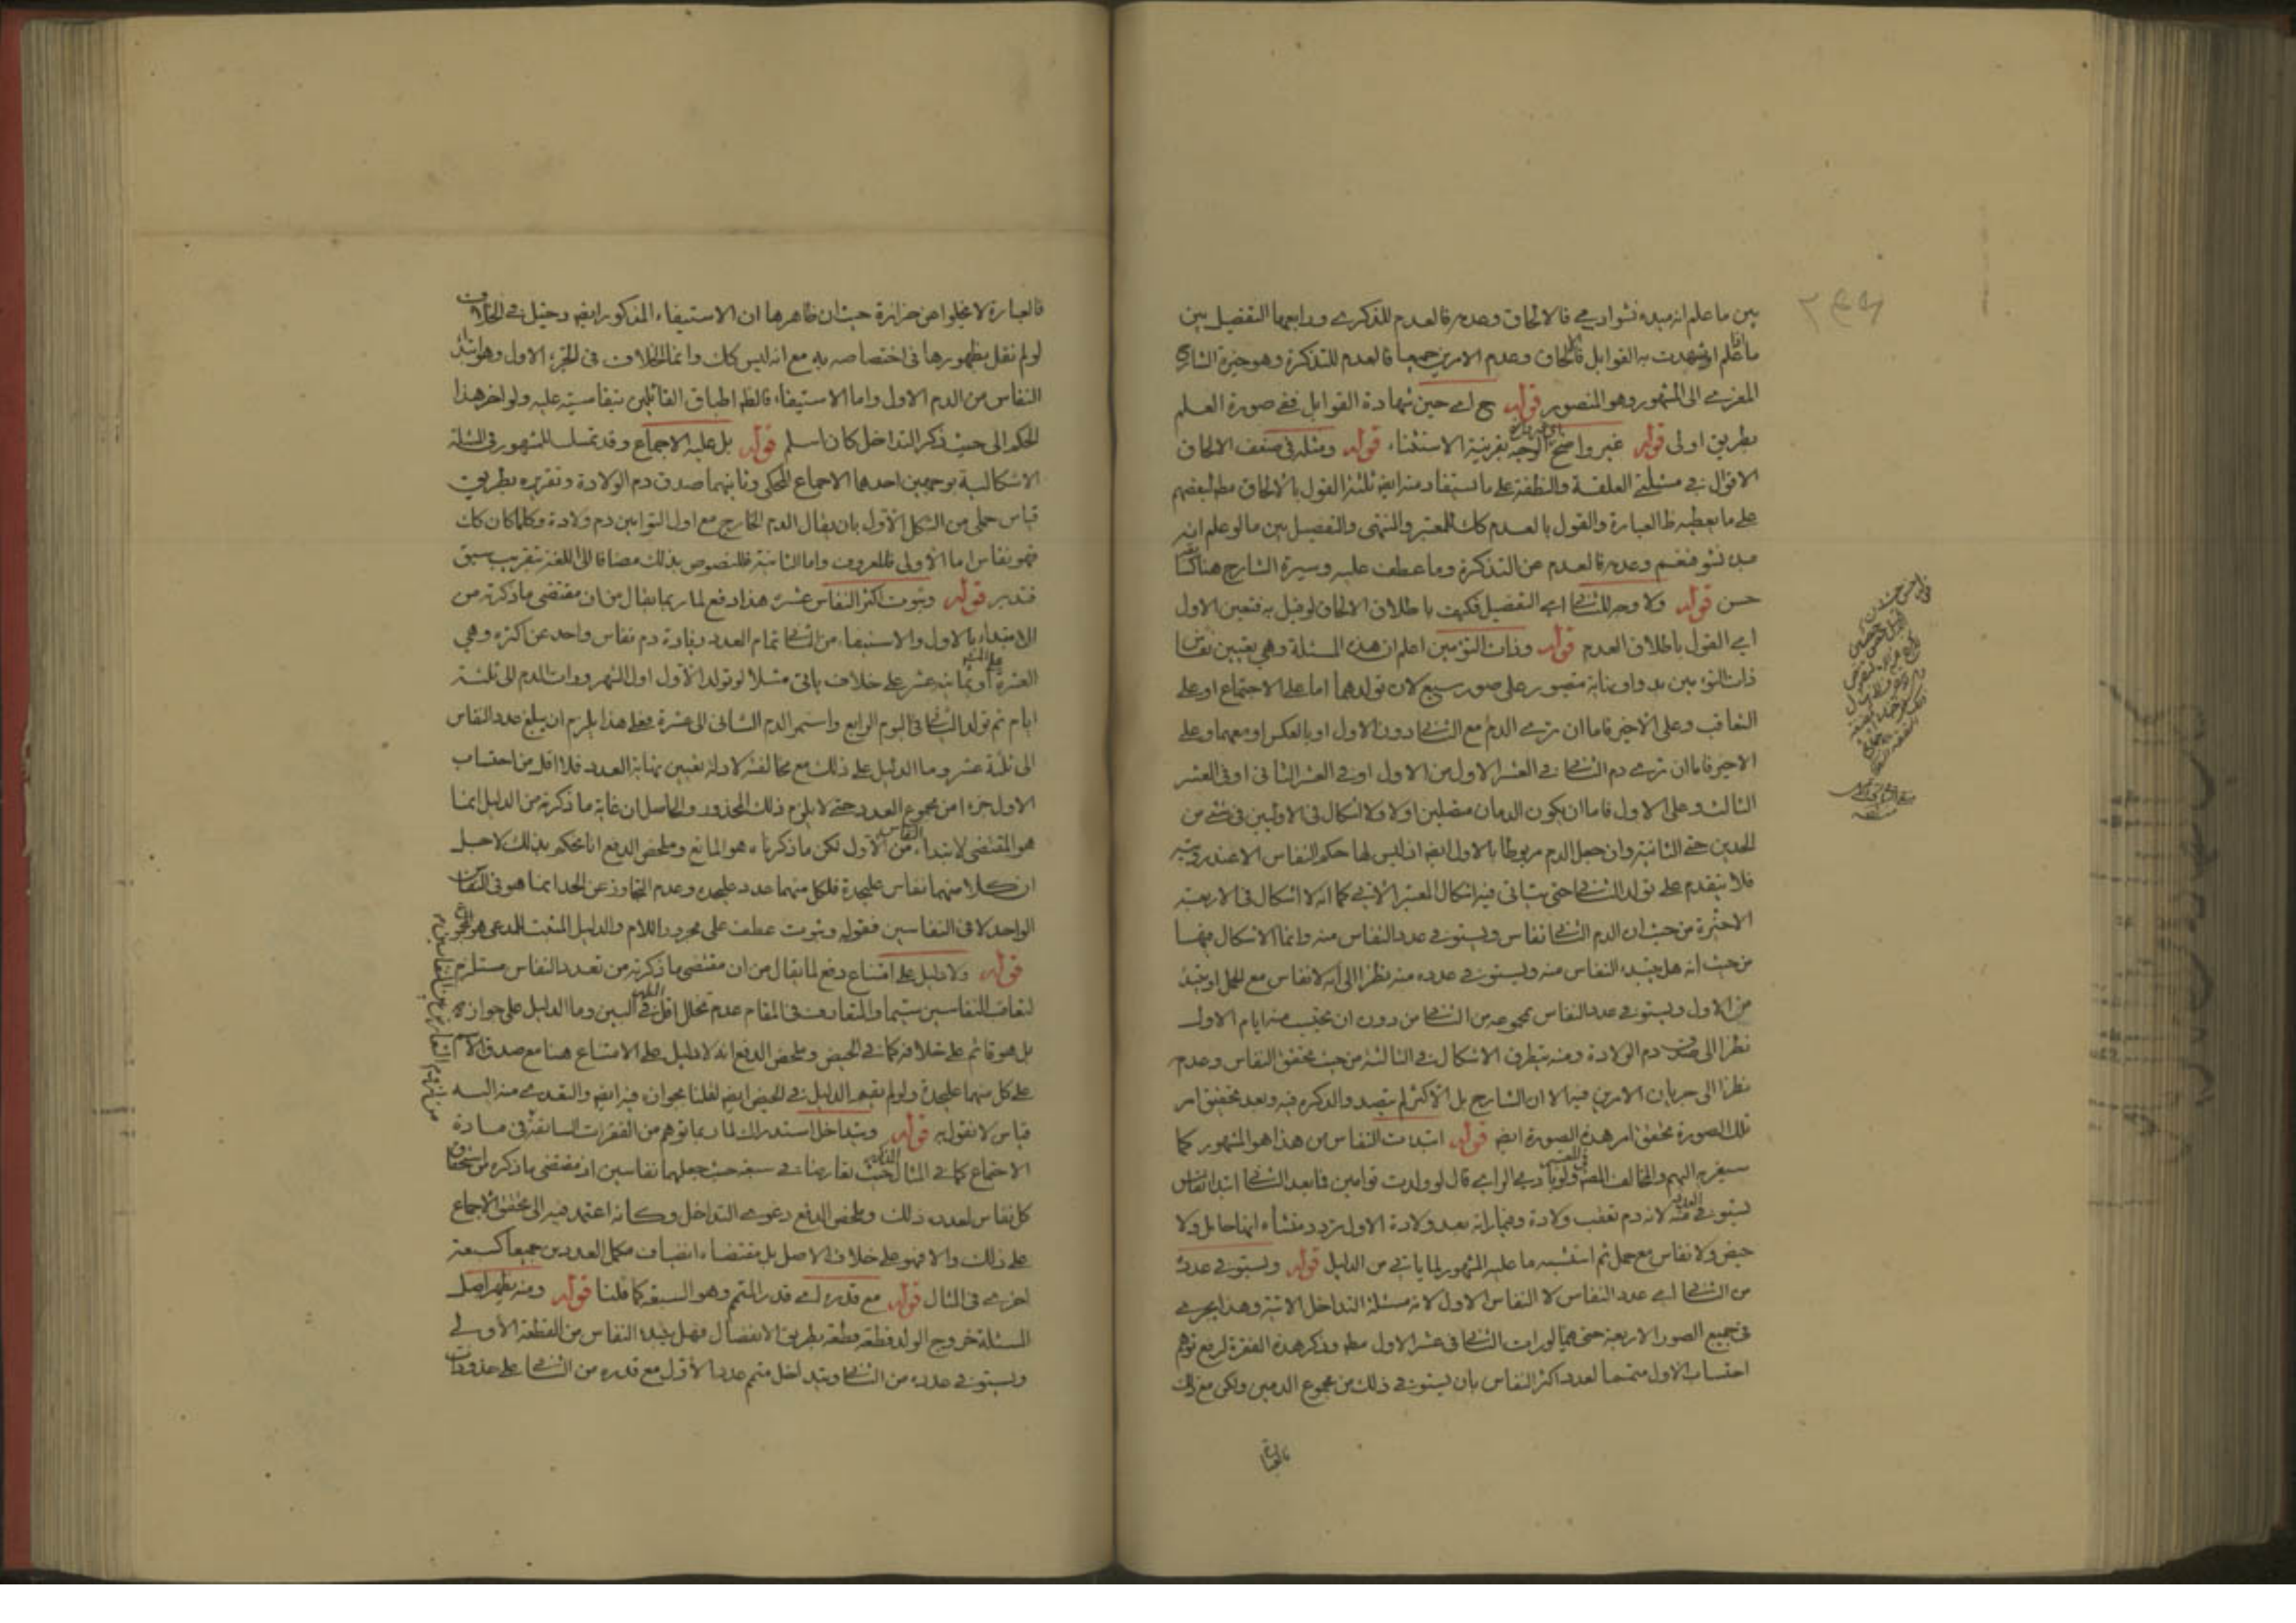 بين ما علم انه مبدء نشو ادمي فالالحاق وعدمه فالعدم للذكرى ورابعها التفصيل بين
ما علم او شهدت به القوابل فالالحاق وعدم الامرين جميعا فالعدم للتذكرة وهو خيرة الشارح
المعزى الى المشهور وهو المنصور قوله ح اى حين شهادة القوابل ففى صورة العلم
بطريق اولى قوله غير واضح الوجه بقرينة الاستثناء قوله ومثله فى ضعف الالحاق
الاقوال فى مسئلتى العلقة والنطفة على ما استفاد منه ايض ثلثة القول بالالحاق مط لبعضهم
على ما يعطيه ظ العبارة والقول بالعدم كك للمعتبر والمنتهى والتفصيل بين ما لو علم انه
مبدء نشو فنعم وعدمه فالعدم عن التذكرة وما عطف عليه وسيرة الشارح هناك
حسن قوله ولا وجه للثانى اى التفصيل فكيف باطلاق الالحاق لو قيل به فتعين الاول
اى القول باطلاق العدم قوله وذات التوئمين اعلم ان هذه المسئلة وهى تعيين نفاس
ذات التوئمين بدوا ونهاية متصور على صور سبع لان تولدهما اما على الاجتماع او على
التعاقب وعلى الاخير فاما ان ترى الدم مع الثانى دون الاول او بالعكس او معهما وعلى
الاخير فاما ان ترى دم الثانى فى العشر الاول من الاول او فى العشر الثانى او فى العشر
الثالث وعلى الاول فاما ان يكون الدمان متصلين اولا ولا اشكال فى الاوليين فى شئ من
الحدين حتى الثانية وان جعل الدم مربوطا بالاول ايض اذ ليس لها حكم النفاس الا عند رويته
فلا يتقدم على تولد الثانى حتى يتاتى فيه اشكال المعتبر الاتى كما انه لا اشكال فى الاربعة
الاخيرة من حيث ان الدم الثانى نفاس ويستوفى عدد النفاس منه وانما الاشكال فيها
من حيث انه هل يبتدء النفاس منه ويستوفى عدده منه نظرا الى انه لا نفاس مع الحمل او يبتدء
من الاول ويستوفى عدد النفاس بمجموعه من الثانى من دون ان يحتسب منه ايام الاول
نظرا الى صدق دم الولادة ومنه يتطرق الاشكال فى الثالثة من حيث تحقق النفاس وعدمه
نظرا الى جريان الامرين فيه الا ان الشارح بل الاكثر لم يتصد والذكره فيه وبعد تحقيق امر
تلك الصورة تحقق امر هذه الصورة ايض قوله ابتدات النفاس من هذا هو المشهور كما
سيعزيه اليهم والمخالف المص ولو ما دمى الراى قال لو ولدت توامين فابعد الثانى ابتداء نفاس
يستوفى منه العدد لانه دم تعقب ولادة وفيما راته بعد ولادة الاول تردد منشاه انها حامل ولا
حيض ولا نفاس مع حمل ثم استشبه ما عليه المشهور لما ياتى من الدليل قوله ويستوفى عدده
من الثانى اى عدد النفاس لا النفاس الاول لانه مسئلة التداخل الاتية وهذا يجرى
فى جميع الصور الاربعة حتى فيما لو رات الثانى فى عشر الاول مط وذكر هذه الفقرة لرفع توهم
احتساب الاول متمما لعدد اكثر النفاس بان يستوفى ذلك من مجموع الدمين ولكن مع ذلك
فالعبارة
فالعبارة لا يخلوا عن حزازة حيث ان ظاهرها ان الاستيفاء المذكور ايض دخيل فى الخلاف
لو لم نقل بظهورها فى اختصاصه به مع انه ليس كك وانما الخلاف فى الجزء الاول وهو ابتداء
النفاس من الدم الاول واما الاستيفاء فالظ اطباق القائلين بنفاسيته عليه ولو اخر هذا
الحكم الى حيث ذكر التداخل كان اسلم قوله بل عليه الاجماع وقد تمسك للمشهور فى المسئلة
الاشكالية بوجهين احدهما الاجماع المحكى وثانيهما صدق دم الولادة وتقريره بطريق
قياس حملى من الشكل الاول بان يقال الدم الخارج مع اول التوامين دم ولادة وكلما كان كك
فهو نفاس اما الاولى فللعروف واما الثانية فللنصوص بذلك مضافا الى اللغة بتقريب سبق
فتدبر قوله وثبوت اكثر النفاس عشرة هذا دفع لما ربما يقال من ان مقتضى ما ذكرته من
الابتداء بالاول والاستيفاء من الثانى تمام العدد زيادة دم نفاس واحد عن اكثره وهى
العشرة او ثمانية عشر على خلاف ياتى مثلا لو تولد الاول اول الشهر ورات الدم الى ثلثة
ايام ثم تولد الثانى فى اليوم الرابع واستمر الدم الثانى الى عشرة فعلى هذا يلزم ان يبلغ عدد النفاس
الى ثلثة عشر وما الدليل على ذلك مع مخالفته لادلة تعيين نهاية العدد فلا اقل من احتساب
الاول جزء من مجموع العدد حتى لا يلزم ذلك المحذور والحاصل ان غاية ما ذكرته من الدليل انما
هو المقتضى لابتداء النفاس من الاول لكن ما ذكرناه هو المانع وملخص الدفع انا نحكم بذلك لاجل
ان كلا منهما نفاس عليحدة فلكل منهما عدد عليحده وعدم التجاوز عن الحد انما هو فى النفاس
الواحد لا فى النفاسين فقوله وثبوت عطف على مجرور اللام والدليل المثبت للمدعى هو المجموع
قوله ولا دليل على امتناع دفع لما يقال من ان مقتضى ما ذكرته من تعدد النفاس مستلزم
لتعاقب النفاسين سيما والمتعارف فى المقام عدم تخلل اقل الطهر فى البين وما الدليل على جوازه
بل هو قائم على خلافه كما فى الحيض وملخص الدفع انه لا دليل على الامتناع هنا مع صدق الاسم
على كل منهما عليحدة ولو لم يقم الدليل فى الحيض ايض لقلنا بجوازه فيه ايض والتعدى منه اليه
قياس لا نقول به قوله ويتداخل استدراك لما ربما توهم من الفقرات السابقة فى مادة
الاجتماع كما فى المثال حيث تعارضا فى سبعة حيث جعلهما نفاسين اذ مقتضى ما ذكره من استحقاق
كل نفاس لعدده ذلك وملخص الدفع دعوى التداخل وكانه اعتمد فيه الى تحقق الاجماع
على ذلك والا فهو على خلاف الاصل بل مقتضاه انضياف مكمل العددين جميعا كسبعة
اخرى فى المثال قوله مع قدره اى قدر المتمم وهو السبعة كما قلنا قوله ومنه يظهر اصل
المسئلة خروج الولد قطعة قطعة بطريق الانفصال فهل يبتدء النفاس من القطعة الاولى
ويستوفى عدده من الثانى ويتداخل متمم عدد الاول مع قدره من الثانى على حذو ذات